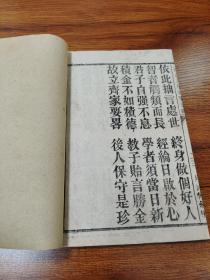 依此拙言處世　終身做個好人
智而長　經綸日啟於心
君子自强不息　學者須當日新
積金不如積德　教子貽言勝金
故立齊家要畧　後人保守是珍